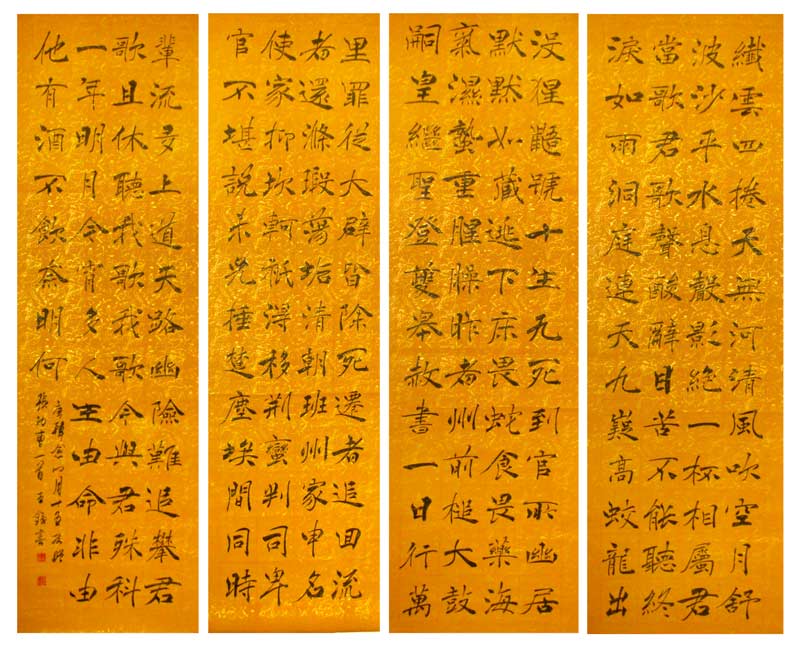 纖雲四捲天無河清風吹空月舒
波沙平水息聲影絕一杯相屬君
當歌君歌聲酸辭且苦不能聽終
淚如雨洞庭連天九嶷高蛟龍出
沒猩鼯號十生九死到官所幽居
默默如藏逃下床畏蛇食畏藥海
氣濕蟄重腥臊昨者州前槌大鼓
嗣皇繼聖登夔皋赦書一日行萬
里罪從大辟皆除死遷者追回流
者還滌瑕蕩垢清朝班州家申名
使家抑坎軻祇得移荊蠻判司卑
官不堪說未免捶楚塵埃間同時
輩流多上道天路幽險難追攀君
歌且休聽我歌我歌今與君殊科
一年明月今宵多人生由命非由
他有酒不飲奈明何
唐韓愈八月十五夜贈
張功曹一首